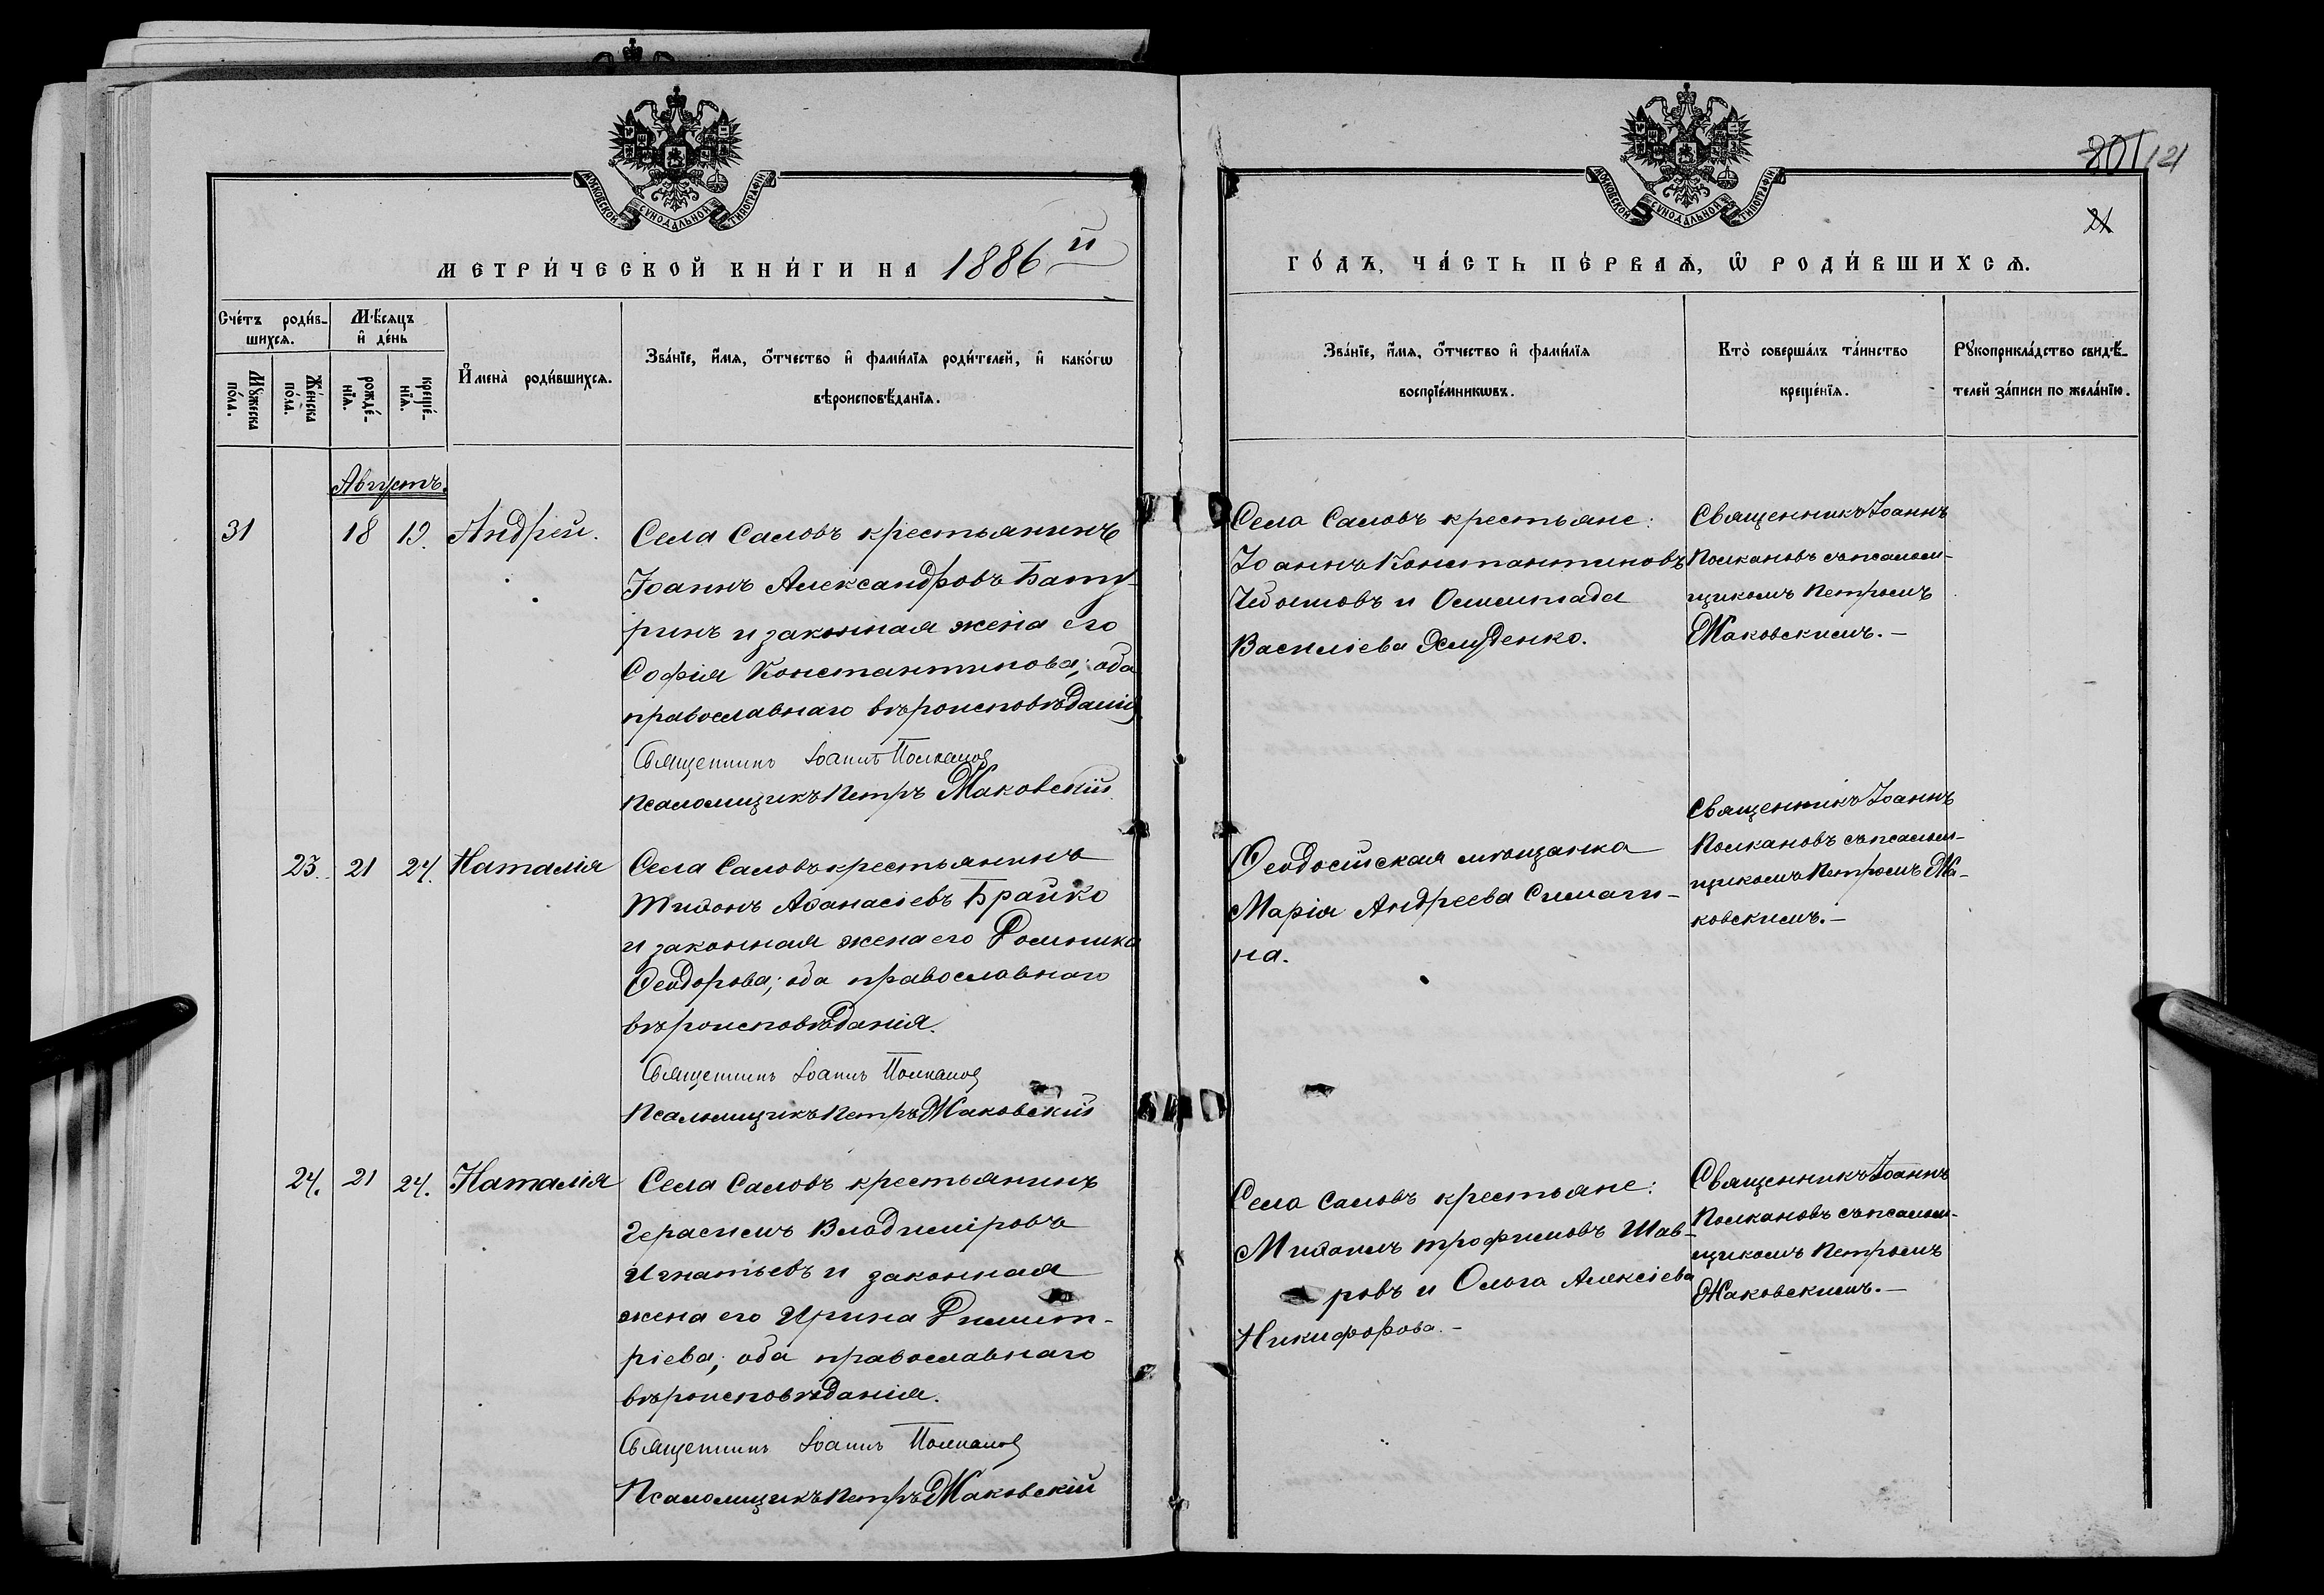 МОСКОВСКОЙ СѴНОДАЛЬНОЙ ТИПОГРАФІИ
МЕТРИ́ЧЕСКОЙ КНИ́ГИ НА 1886й
Сче́тъ роди́в-
шихсѧ.
Мꙋ́жеска
по́ла.
Же́нска
по́ла.
Мѣ́сѧцъ
и҆ де́нь
рожде́-
нїѧ.
креще́-
нїѧ.
И҆мена̀ роди́вшихсѧ.
Зва́нїе, и҆́мѧ, ѻ҆́тчество и҆ фами́лїѧ роди́телей, и҆ како́гѡ
вѣроисповѣ́данїѧ.
Августъ.
31 18 19. Андрей.
Села Саловъ крестьянинъ
Іоаннъ Александровъ Бату-
ринъ и законная жена его
Софія Константинова; оба
православнаго вѣроисповѣданія
Священникъ Іоаннъ Полканов
Псаломщикъ Петръ Жаковскій
23. 21 24. Наталія
Села Саловъ крестьянинъ
Тихонъ Аѳанасіевъ Брайко
и законная жена его Домника
Ѳеодорова; оба православнаго
вѣроисповѣданія.
Священникъ Іоаннъ Полканов
Псаломщикъ Петръ Жаковскій
24. 21 24. Наталія
Села Саловъ крестьянинъ
Герасимъ Владиміровъ
Игнатьевъ и законная
жена его Ирина Димит-
ріева; оба православнаго
вѣроисповѣданія.
Священникъ Іоаннъ Полканов
Псаломщикъ Петръ Жаковскій
201 121
21
МОСКОВСКОЙ СѴНОДАЛЬНОЙ ТИПОГРАФІИ
ГО́ДЪ, ЧА́СТЬ ПЕ́РВАѦ, Ѡ҆ РОДИ́ВШИХСѦ.
Зва́нїе, и҆́мѧ, ѻ҆́тчество и҆ фами́лїѧ
воспрїе́мникѡвъ.
Кто̀ соверша́лъ та́инство
креще́нїѧ.
Рꙋкоприкла́дство свидѣ́-
телей за́писи по жела́нїю.
Села Саловъ крестьяне:
Іоаннъ Константиновъ
и
Василіева
Священникъ Іоаннъ
Полкановъ съ псалом-
щикомъ Петромъ
Жаковскимъ.—
Ѳеодосійская мѣщанка
Марія Андреева Симаги-
на.
Священникъ Іоаннъ
Полкановъ съ псалом-
щикомъ Петромъ Жа-
ковскимъ.—
Села Саловъ крестьяне:
Михаилъ Трофимовъ Шав-
ровъ и Ольга Алексіева
Никифорова.—
Священникъ Іоаннъ
Полкановъ съ псалом-
щикомъ Петромъ
Жаковскимъ.—